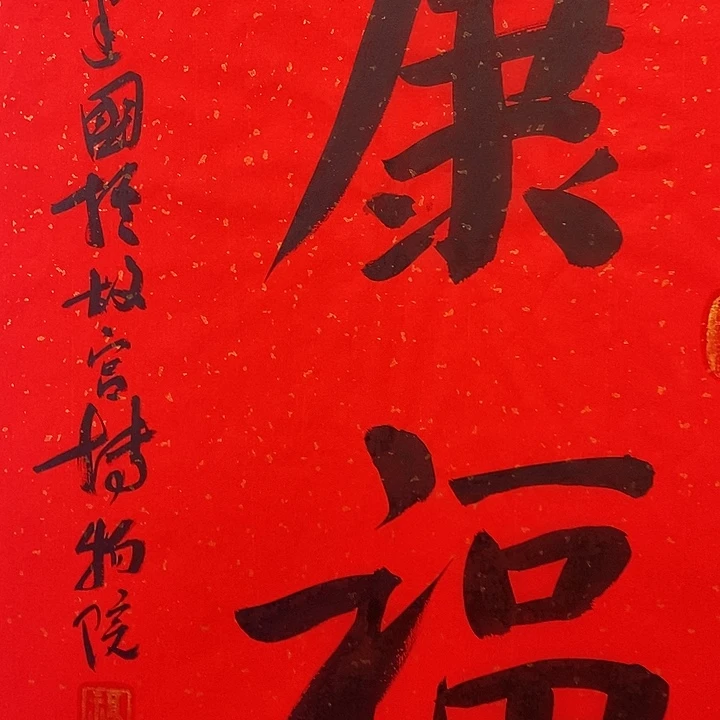 康福
建國於故宮博物院